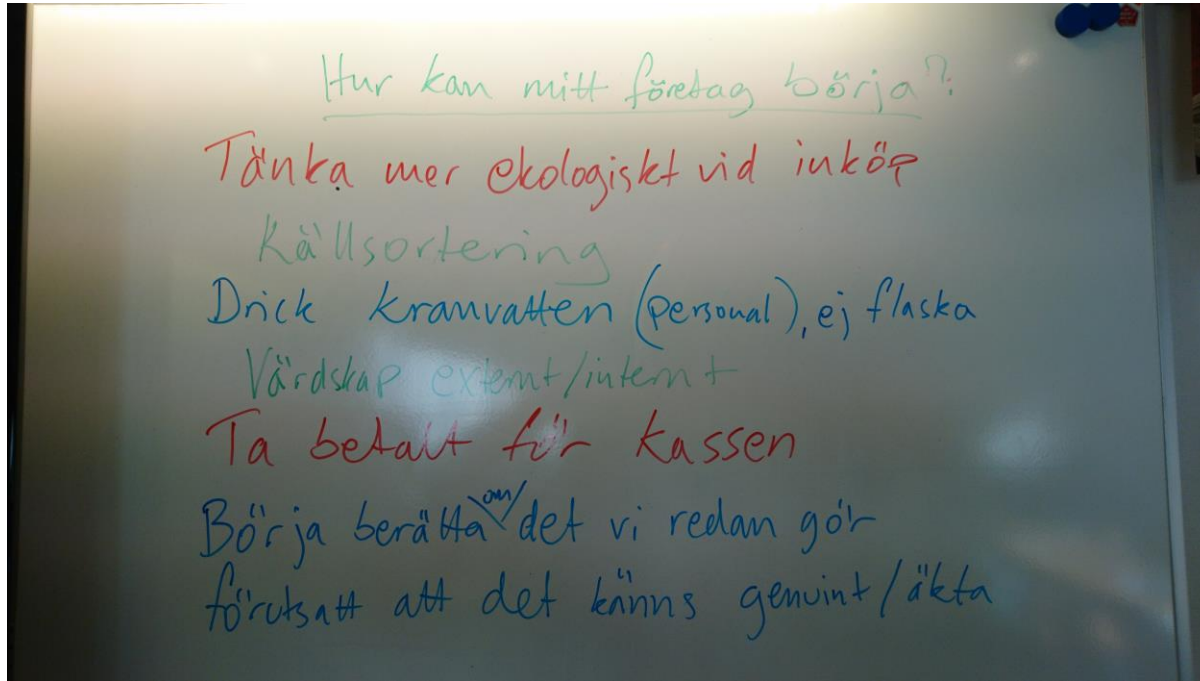 Hur kan mitt företag börja?
Tänka mer ekologiskt vid inköp
Källsortering
Drick kranvatten (personal), ej flaska
Värdskap externt/internt
Ta betalt för kassen
Börja berätta om det vi redan gör
förutsatt att det känns genuint/äkta